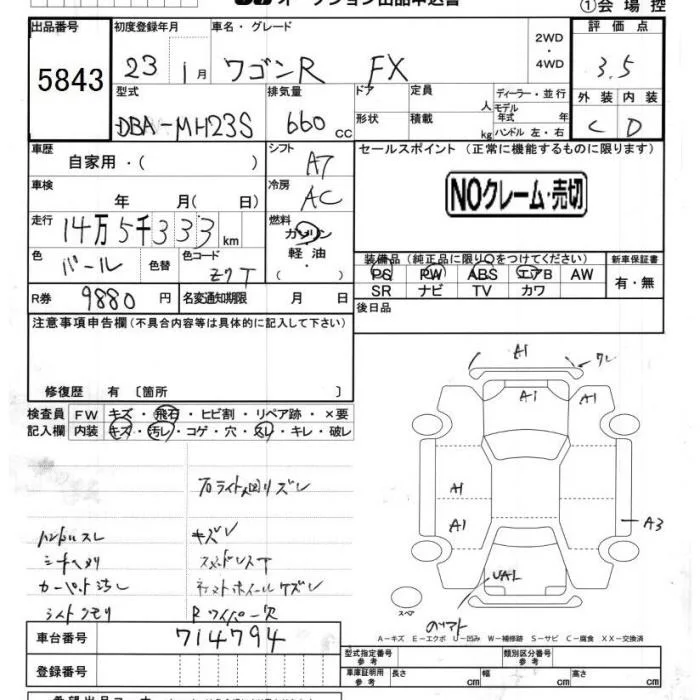 オークション出品申込書 ①会場控
出品番号 初度登録年月 車名・グレード 2WD ・ 4WD 評価点
5843 23 1月 ワゴンR FX 3.5
型式 排気量 ドア 定員 人 ディーラー・並行 外装 内装
DBA-MH23S 660cc 形状 積載 kg モデル年式 年 ハンドル 左・右 C D
車歴 自家用・( ) シフト AT セールスポイント(正常に機能するものに限ります)
車検 年 月( 日) 冷房 AC NOクレーム・売切
走行 14万5千333km 燃料 ガソリン 軽油 ( )
色 パール 色替 色コード Z7T 装備品(純正品に限り○をつけてください) 新車保証書
PS PW ABS エアB AW 有・無
SR ナビ TV カワ
R券 9880円 名変通知期限 月 日 後日品
注意事項申告欄(不具合内容等は具体的に記入して下さい)
修復歴 有 〔箇所 〕
検査員 FW キズ・飛石・ヒビ割・リペア跡・×要
記入欄 内装 キズ・汚レ・コゲ・穴・スレ・キレ・破レ
A1 ワレ
A1 A1
A1
A1 A3
UAL
ハンドルスレ キズレ
シートヘタリ
カーペット汚レ
ライトクモリ Rワイパー欠
スペア
A-キズ E-エクボ U-凹み W-補修跡 S-サビ C-腐食 XX-交換済
車台番号 714794
登録番号
型式指定番号 参考 類別区分番号 参考
車庫証明用 参考 長さ cm 幅 cm 高さ cm